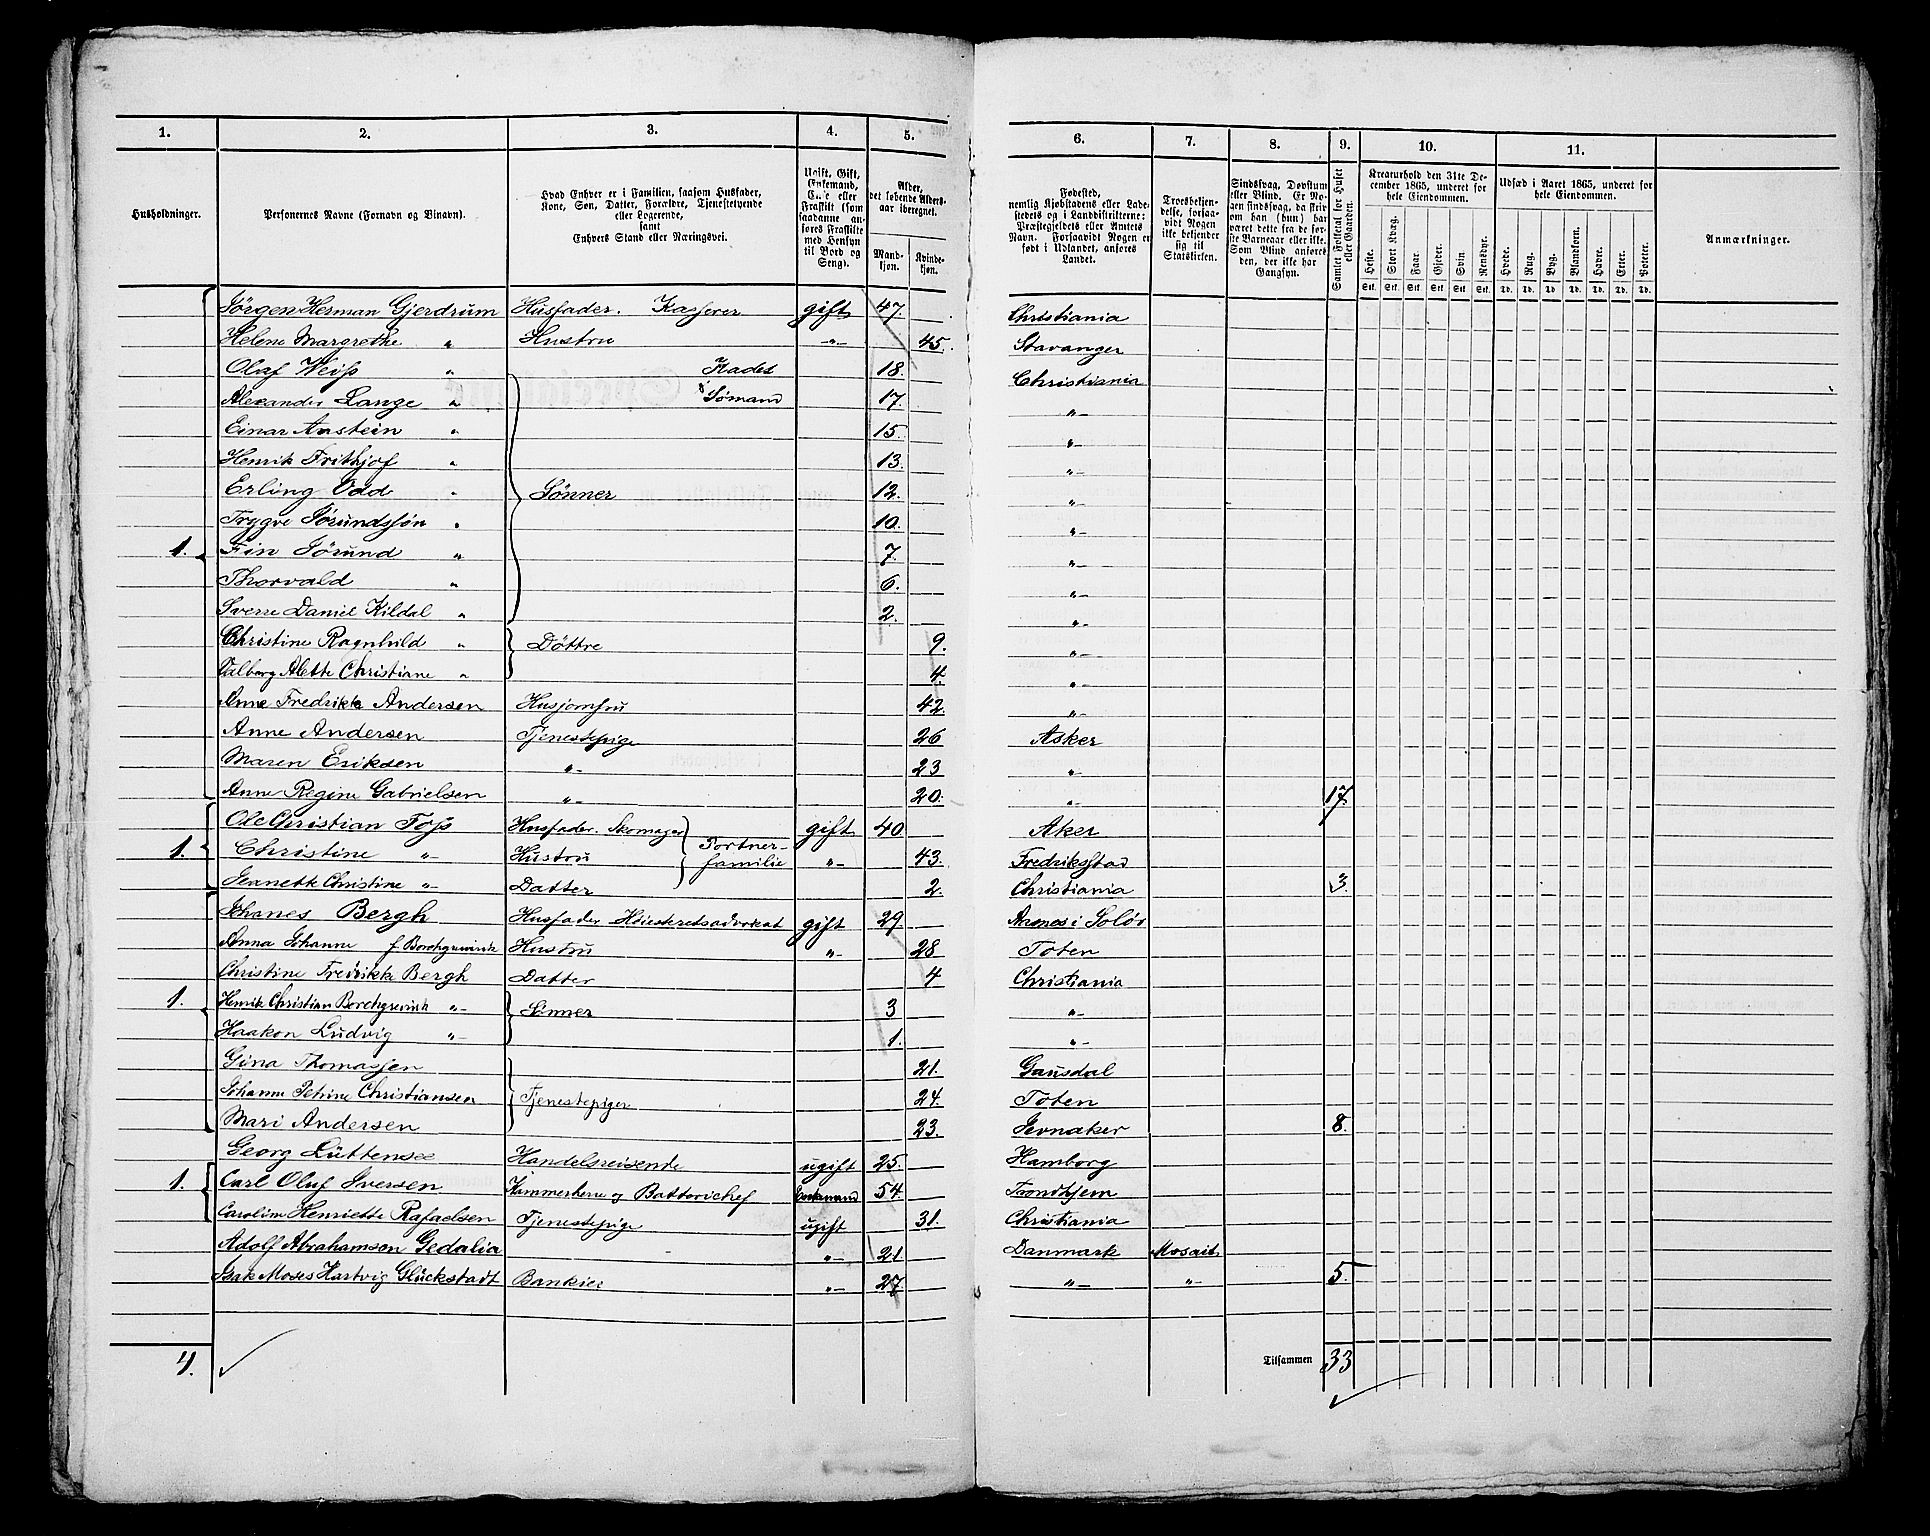 1. 2. 3. 4. 5. 6. 7. 8. 9. 10. 11.
Husholdninger.
Personernes Navne (Fornavn og Binavn).
Hvad Enhver er i Familien, saasom Husfader,
Kone, Søn, Datter, Forældre, Tjenestetyende
eller Logerende,
samt
Enhvers Stand eller Næringsvei.
Ugift, Gift,
Enkemand,
Enke eller
Fraskilt (som
saadanne an-
føres Fraskilte
med Hensyn
til Bord og
Seng).
Alder,
det løbende Alders-
aar iberegnet.
Mand-
kjøn.
Kvinde-
kjøn.
Fødested,
nemlig Kjøbstadens eller Lade-
stedets og i Landdistrikterne:
Præstegjeldets eller Amtets
Navn. Forsaavidt Nogen er
født i Udlandet, anføres
Landet.
Troesbekjen-
delse, forsaa-
vidt Nogen
ikke bekjender
sig til
Statskirken.
Sindssvag, Døvstum
eller Blind. Er No-
gen sindssvag, da skriv
om han (hun) har
været dette fra de før-
ste Barneaar eller ikke.
Som Blind anføres
den, der ikke har
Gangsyn.
Samlet Folketal for Huset
eller Gaarden.
Kreaturhold den 31te De-
cember 1865, underet for
hele Eiendommen.
Heste. Stort Kvæg. Faar. Gjeder. Svin Rensdyr.
Stk. Stk. Stk. Stk. Stk. Stk.
Udsæd i Aaret 1865, underet for
hele Eiendommen.
Hvede. Rug. Byg. Blandkorn. Havre. Erter. Poteter.
Td. Td. Td. Td. Td. Td. Td.
Anmærkninger.
Jørgen Herman Gjerdrum Husfader. Kasserer gift 47. Christiania
Helene Margrethe " Hustru "- 45. Stavanger
Olaf Weiss " Kadet 18. Christiania
Alexander Lange " Sømand 17. "-
Einar Anstein " 15. "-
Henrik Frithjof " 13. "-
Erling Odd " Sønner 12. "-
Trygve Jörundssön " 10. "-
1. Fin Jörund " 7. "-
Thorvald " 6. "-
Sverre Daniel Kildal " 2. "-
Christine Ragnhild " Døttre 9. "-
Valborg Alette Christiane " 4. "-
Anne Fredrikke Andersen Husjomfru 42. "-
Anne Andersen Tjenestepige 26 Asker
Maren Eriksen "- 23 "-
Anne Regine Gabrielsen "- 20. "- 17
Ole Christian Foss Husfader. Skomager gift 40 Aker
1. Christine "- Hustru Portner-familie "- 43. Fredriksstad
Jeanette Christine "- Datter 2. Christiania 3.
Johanes Bergh Husfader Høiesteretsadvokat gift 29 Aasnes i Solör
Anna Johanne f. Borchgrevink Hustru "- 28 Toten
Christine Fredrikke Bergh Datter 4 Christiania
1. Henrik Christian Borchgrevink "- Sønner 3 "-
Haakon Ludvig "- 1. "-
Gina Thomassen 21. Gausdal
Johanne Petrine Christiansen Tjenestepiger 24. Toten
Mari Andersen 23. Jevnaker 8.
Georg Lüttensee Handelsreisende ugift 25. Hamborg
1. Carl Oluf Iversen Kammerherre og Batterichef Enkemand 54. Trondhjem
Caroline Henriette Rafaelsen Tjenestepige ugift 31. Christiania
Adolf Abrahamson Gedalia "- 21. Danmark Mosait
Isak Moses Hartvig Glückstadt Bankier "- 27. "- "- 5.
4. Tilsammen 33